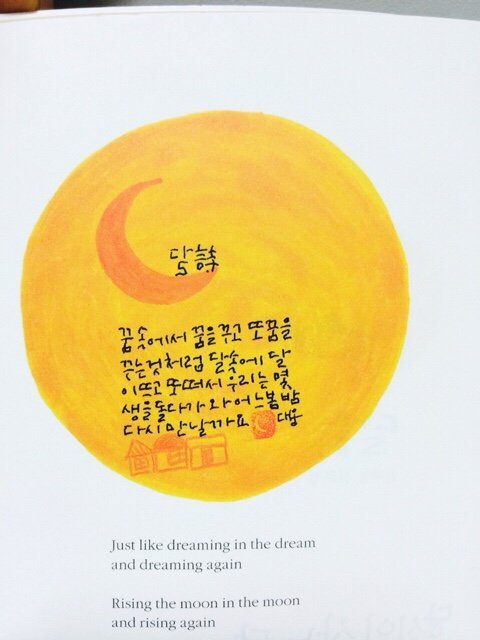 꿈속에서 꿈을꾸고 또꿈을
꾸는것처럼 달속에 달
이뜨고 또떠서 우리는 몇
생을돌다가 와 어느봄밤
다시만날까요 대웅
Just like dreaming in the dream
and dreaming again
Rising the moon in the moon
and rising again